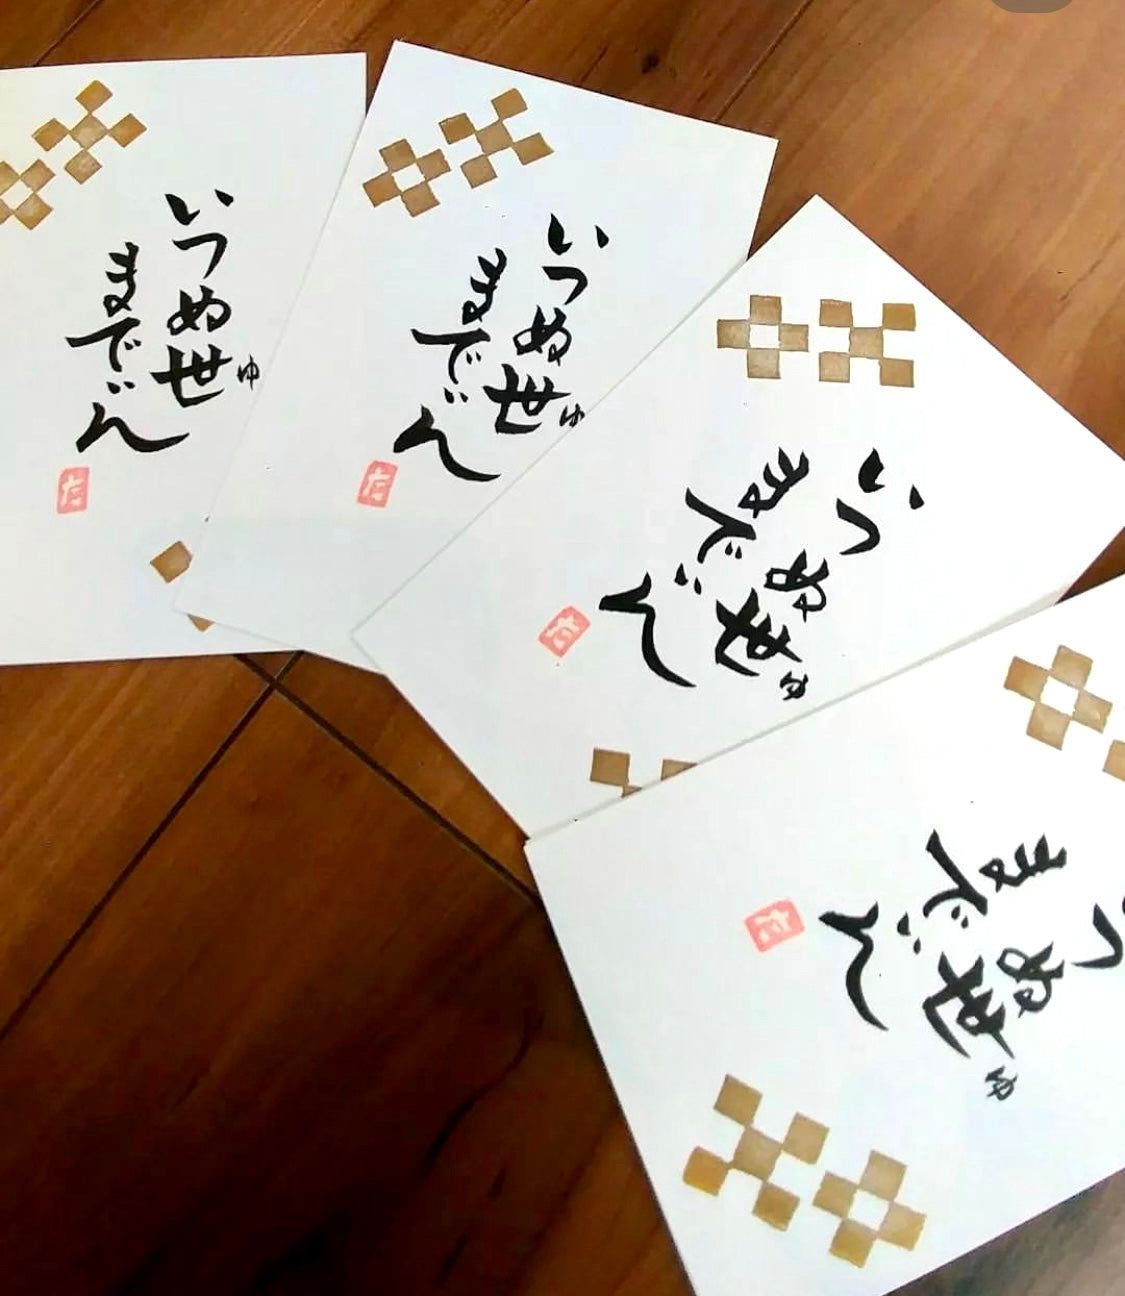 いつぬ世
ゆ
までぃん
た
いつぬ世
ゆ
までぃん
た
いつぬ世
ゆ
までぃん
た
つぬ世
ゆ
までぃん
た